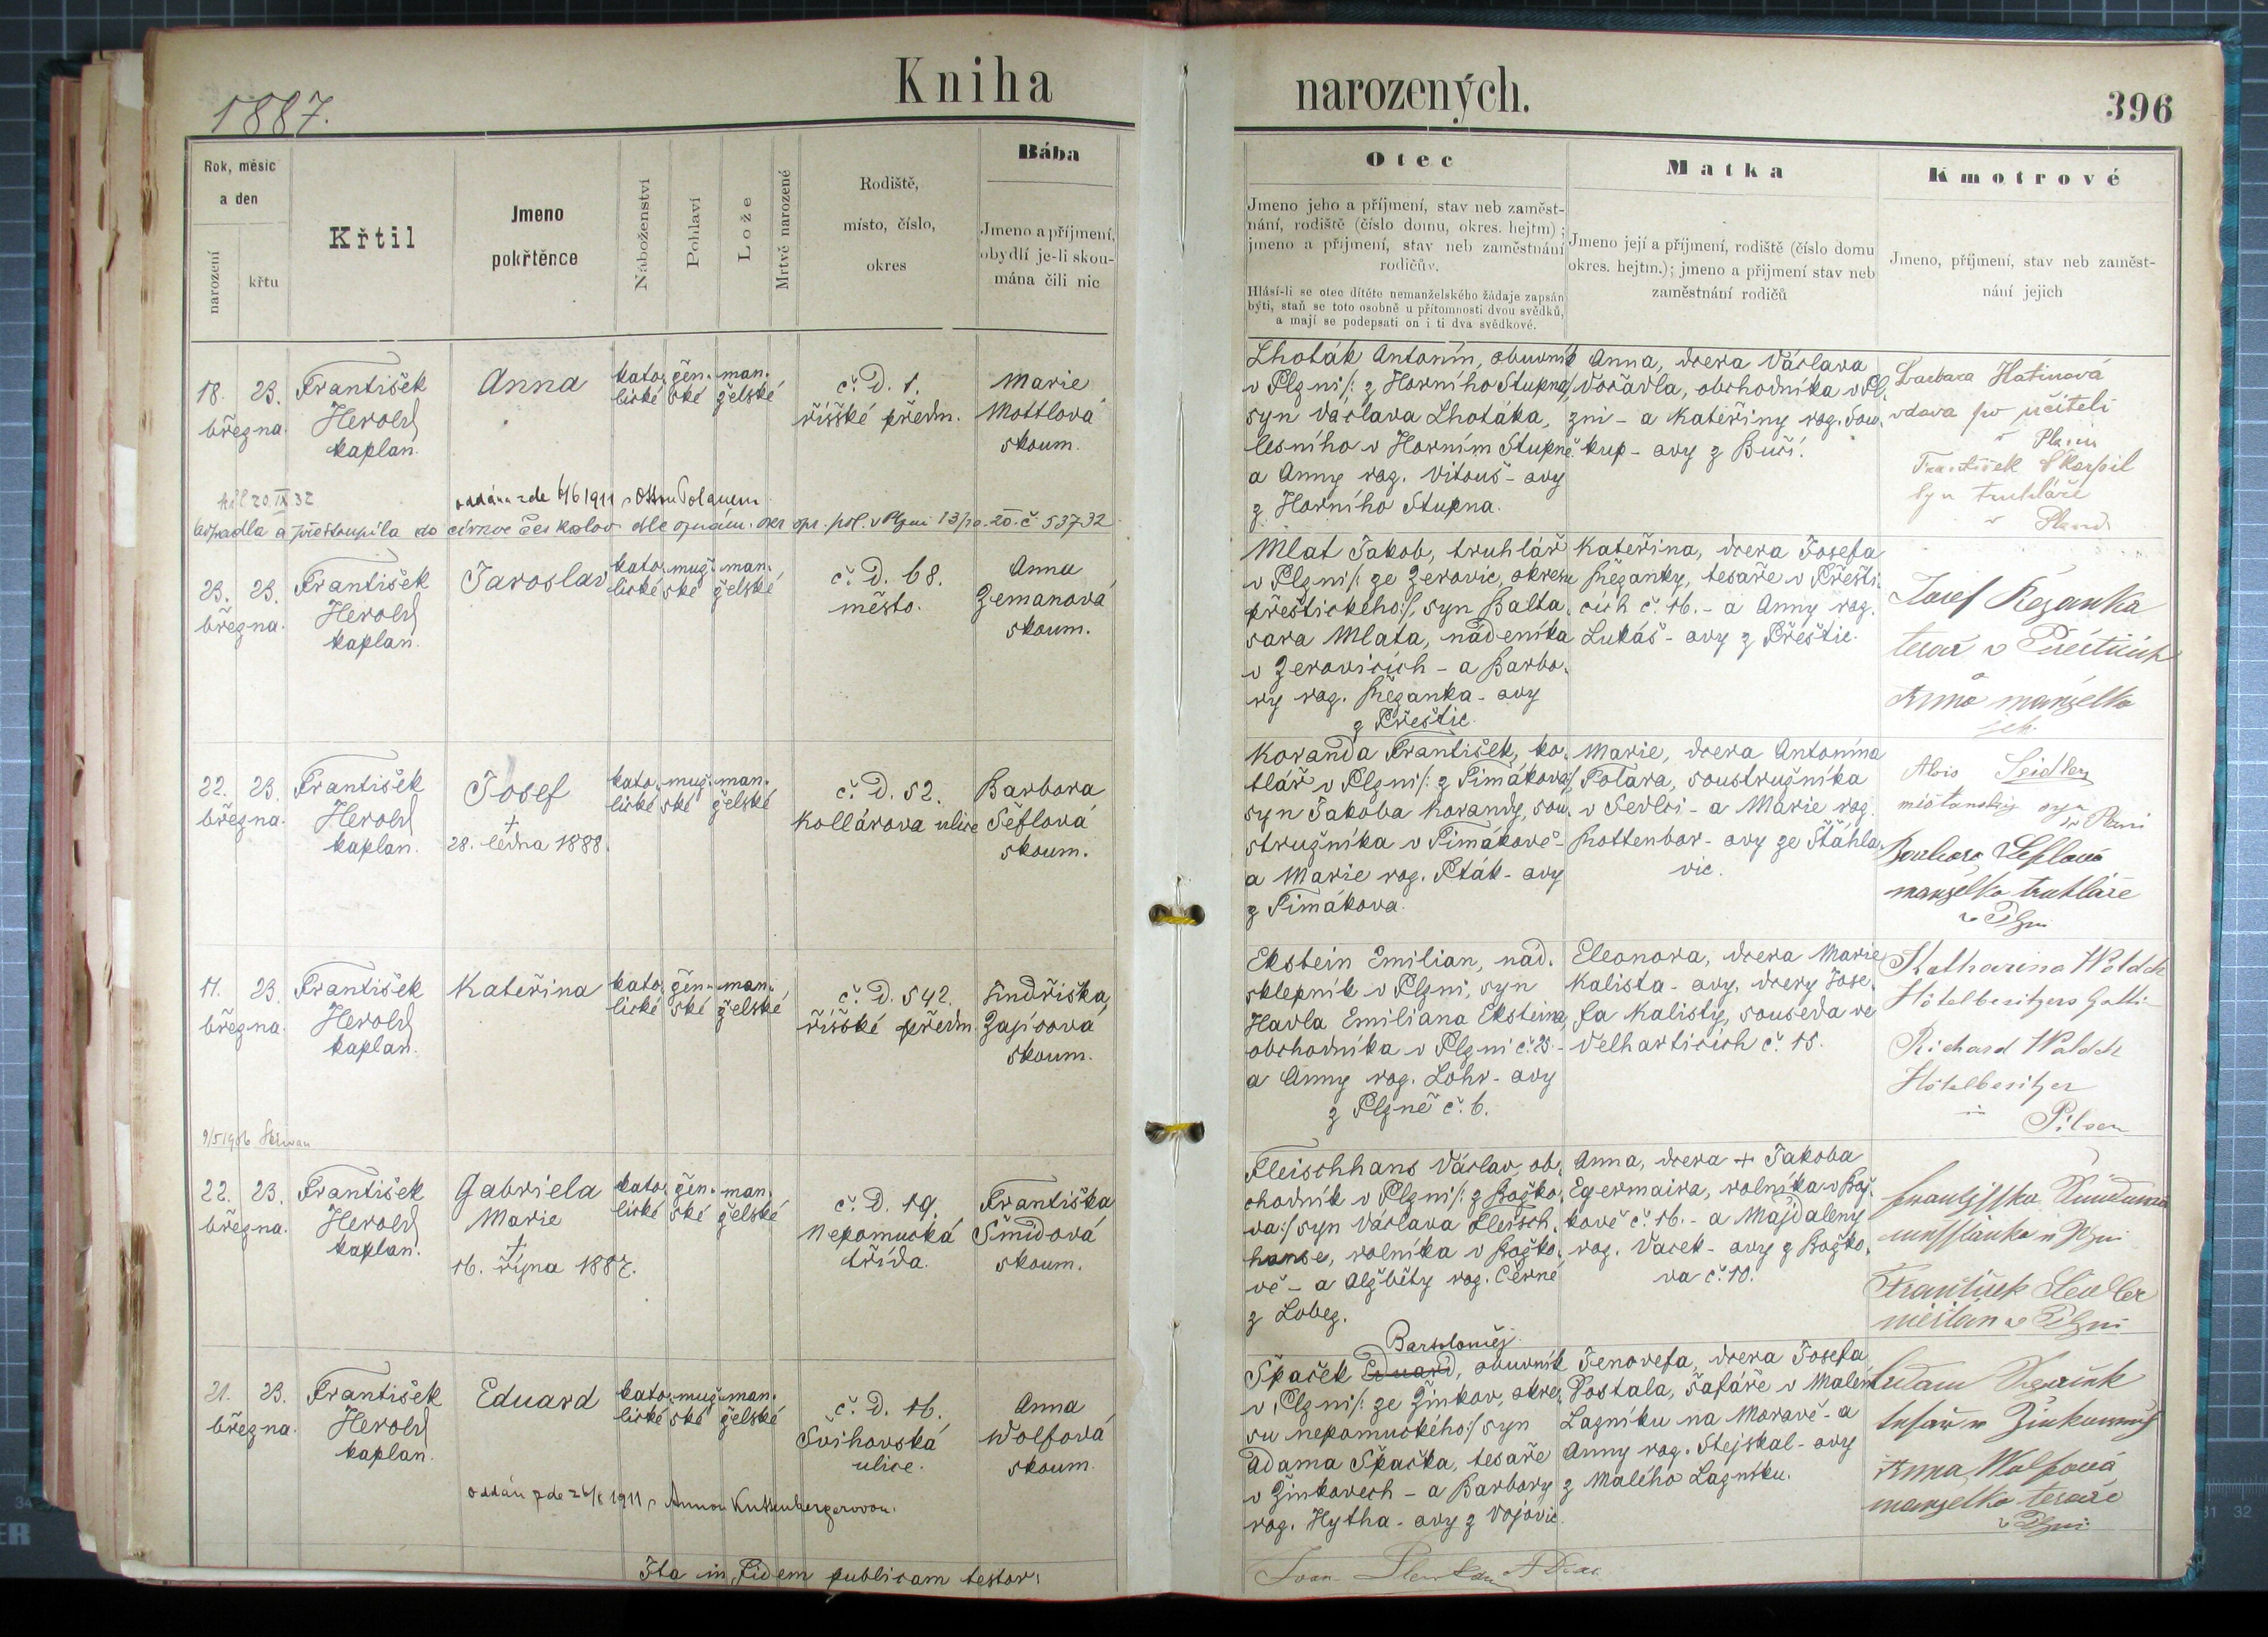 Kniha
narozených.
1887.
396
Rok, měsíc
a den
narození
křtu
Křtil
Jmeno
pokřtěnce
Náboženství
Pohlaví
Lože
Mrtvě narozené
Rodiště,
místo, číslo,
okres
Bába
Jmeno a příjmení,
obydlí je-li skou-
mána čili nic
Otec
Jmeno jeho a příjmení, stav neb zaměst-
nání, rodiště (číslo domu, okres. hejtm) ;
jmeno a příjmení, stav neb zaměstnání
rodičův.
Hlásí-li se otec dítěte nemanželského žádaje zapsán
býti, staň se toto osobně u přítomnosti dvou svědků,
a mají se podepsati on i ti dva svědkové.
Matka
Jmeno její a příjmení, rodiště (číslo domu
okres. hejtm.); jmeno a příjmení stav neb
zaměstnání rodičů
Kmotrové
Jmeno, příjmení, stav neb zaměst-
nání jejich
18. 23.
března.
František
Herold
kaplan.
Anna
kato-
lické
žen-
ské
man-
želské
č. D. 1.
říšské předm.
Marie
Mottlová
skoum.
Lhoták Antonín, obuvník
v Plzni /: z Horního Stupna :/
syn Václava Lhotáka,
lesního v Horním Stupně
a Anny roz. Vitouš-ovy
z Horního Stupna.
Anna, dcera Václava
Vořavla, obchodníka v Pl-
zni - a Kateřiny roz. Sou-
kup-ovy z Bučí.
Barbara Hatinová
vdova po učiteli
v Plzni
František Škarpil
syn truhláře
v Plzni
oddána zde 6/6 1911 s Ottou Polanem
20. IX 32
Odpadla a přestoupila do církve českoslov. dle oznám. okr. pol. v Plzni 13/10. 20. č 53732
23. 23.
března.
František
Herold
kaplan.
Jaroslav
kato-
lické
muž-
ské
man-
želské
č. D. 68.
město.
Anna
Zemanová
skoum.
Mlat Jakob, truhlář
v Plzni /: ze Zerovic, okresu
přeštického :/, syn Balta-
sara Mlata, nádeníka
v Zerovicích - a Barbo-
ry roz. Řežanka-ovy
z Přeštic.
Kateřina, dcera Josefa
Řežanky, tesaře v Přešti-
cích č. 16. - a Anny roz.
Lukáš-ovy z Přeštic.
Josef Řežanka
tesař v Přešticích
Anna manželka
jeh.
22. 23.
března.
František
Herold
kaplan.
Josef
+
28. ledna 1888.
kato-
lické
muž-
ské
man-
želské
č. D. 52.
Kollárova ulice
Barbora
Šeflová
skoum.
Koranda František, ko-
tlář v Plzni /: z Timákova :/,
syn Jakoba Korandy, sou-
stružníka v Timákově -
a Marie roz. Pták-ovy
z Timákova.
Marie, dcera Antonína
Totara, soustružníka
v Sedlci - a Marie roz.
Rottenbor-ovy ze Šťáhla-
vic.
Alois Seidler
měšťanský syn
v Plzni
Barbora Šeflová
manželka truhláře
v Plzni
11. 23.
března.
František
Herold
kaplan.
Kateřina
kato-
lické
žen-
ské
man-
želské
č. D. 542.
říšské předm.
Jindřiška
Zajícová
skoum.
Ekstein Emilian, nád.
sklepník v Plzni, syn
Havla Emiliana Eksteina,
obchodníka v Plzni č. 25 -
a Anny roz. Lohr-ovy
z Plzně č. 6.
Eleonora, dcera Marie
Kalista-ovy, dcery Jose-
fa Kalisty, souseda ve
Velharticích č. 15.
Katharina Waldek
Hôtelbesitzers Gatti
Richard Waldek
Hôtelbesitzer
in
Pilsen
9/5 1906
22. 23.
března.
František
Herold
kaplan.
Gabriela
Marie
+
16. října 1887.
kato-
lické
žen-
ské
man-
želské
č. D. 19.
Nepomucká
třída.
Františka
Šmídová
skoum.
Fleischhans Václav, ob-
chodník v Plzni /: z Božko-
va :/ syn Václava Fleisch-
hanse, rolníka v Božko-
vě - a Alžběty roz. Černé
z Lobez.
Anna, dcera + Jakoba
Egermaira, rolníka v Bož-
kově č. 16. - a Majdaleny
roz. Vacek-ovy z Božko-
va č. 10.
měšťanka v Plzni
František Seidler
měšťan v Plzni
21. 23.
března.
František
Herold
kaplan.
Eduard
kato-
lické
muž-
ské
man-
želské
č. D. 16.
Švihovská
ulice.
Anna
Wolfová
skoum.
Bartoloměj
Špaček Eduard, obuvník
v Plzni /: ze Žinkov, okre-
su nepomuckého :/ syn
Adama Špačka, tesaře
v Žinkovech - a Barbory
roz. Hytha-ovy z Vojovic.
Jenovefa, dcera Josefa
Postala, šafáře v Malém
Lazníku na Moravě - a
Anny roz. Stejskal-ovy
z Malého Lazníku.
Adam
tesař v Žinkovech
Anna Wolfová
manželka tesaře
v Plzni
oddán zde 1911 s Annou Kuttenbergerovou.
Ita in fidem publicam testor: